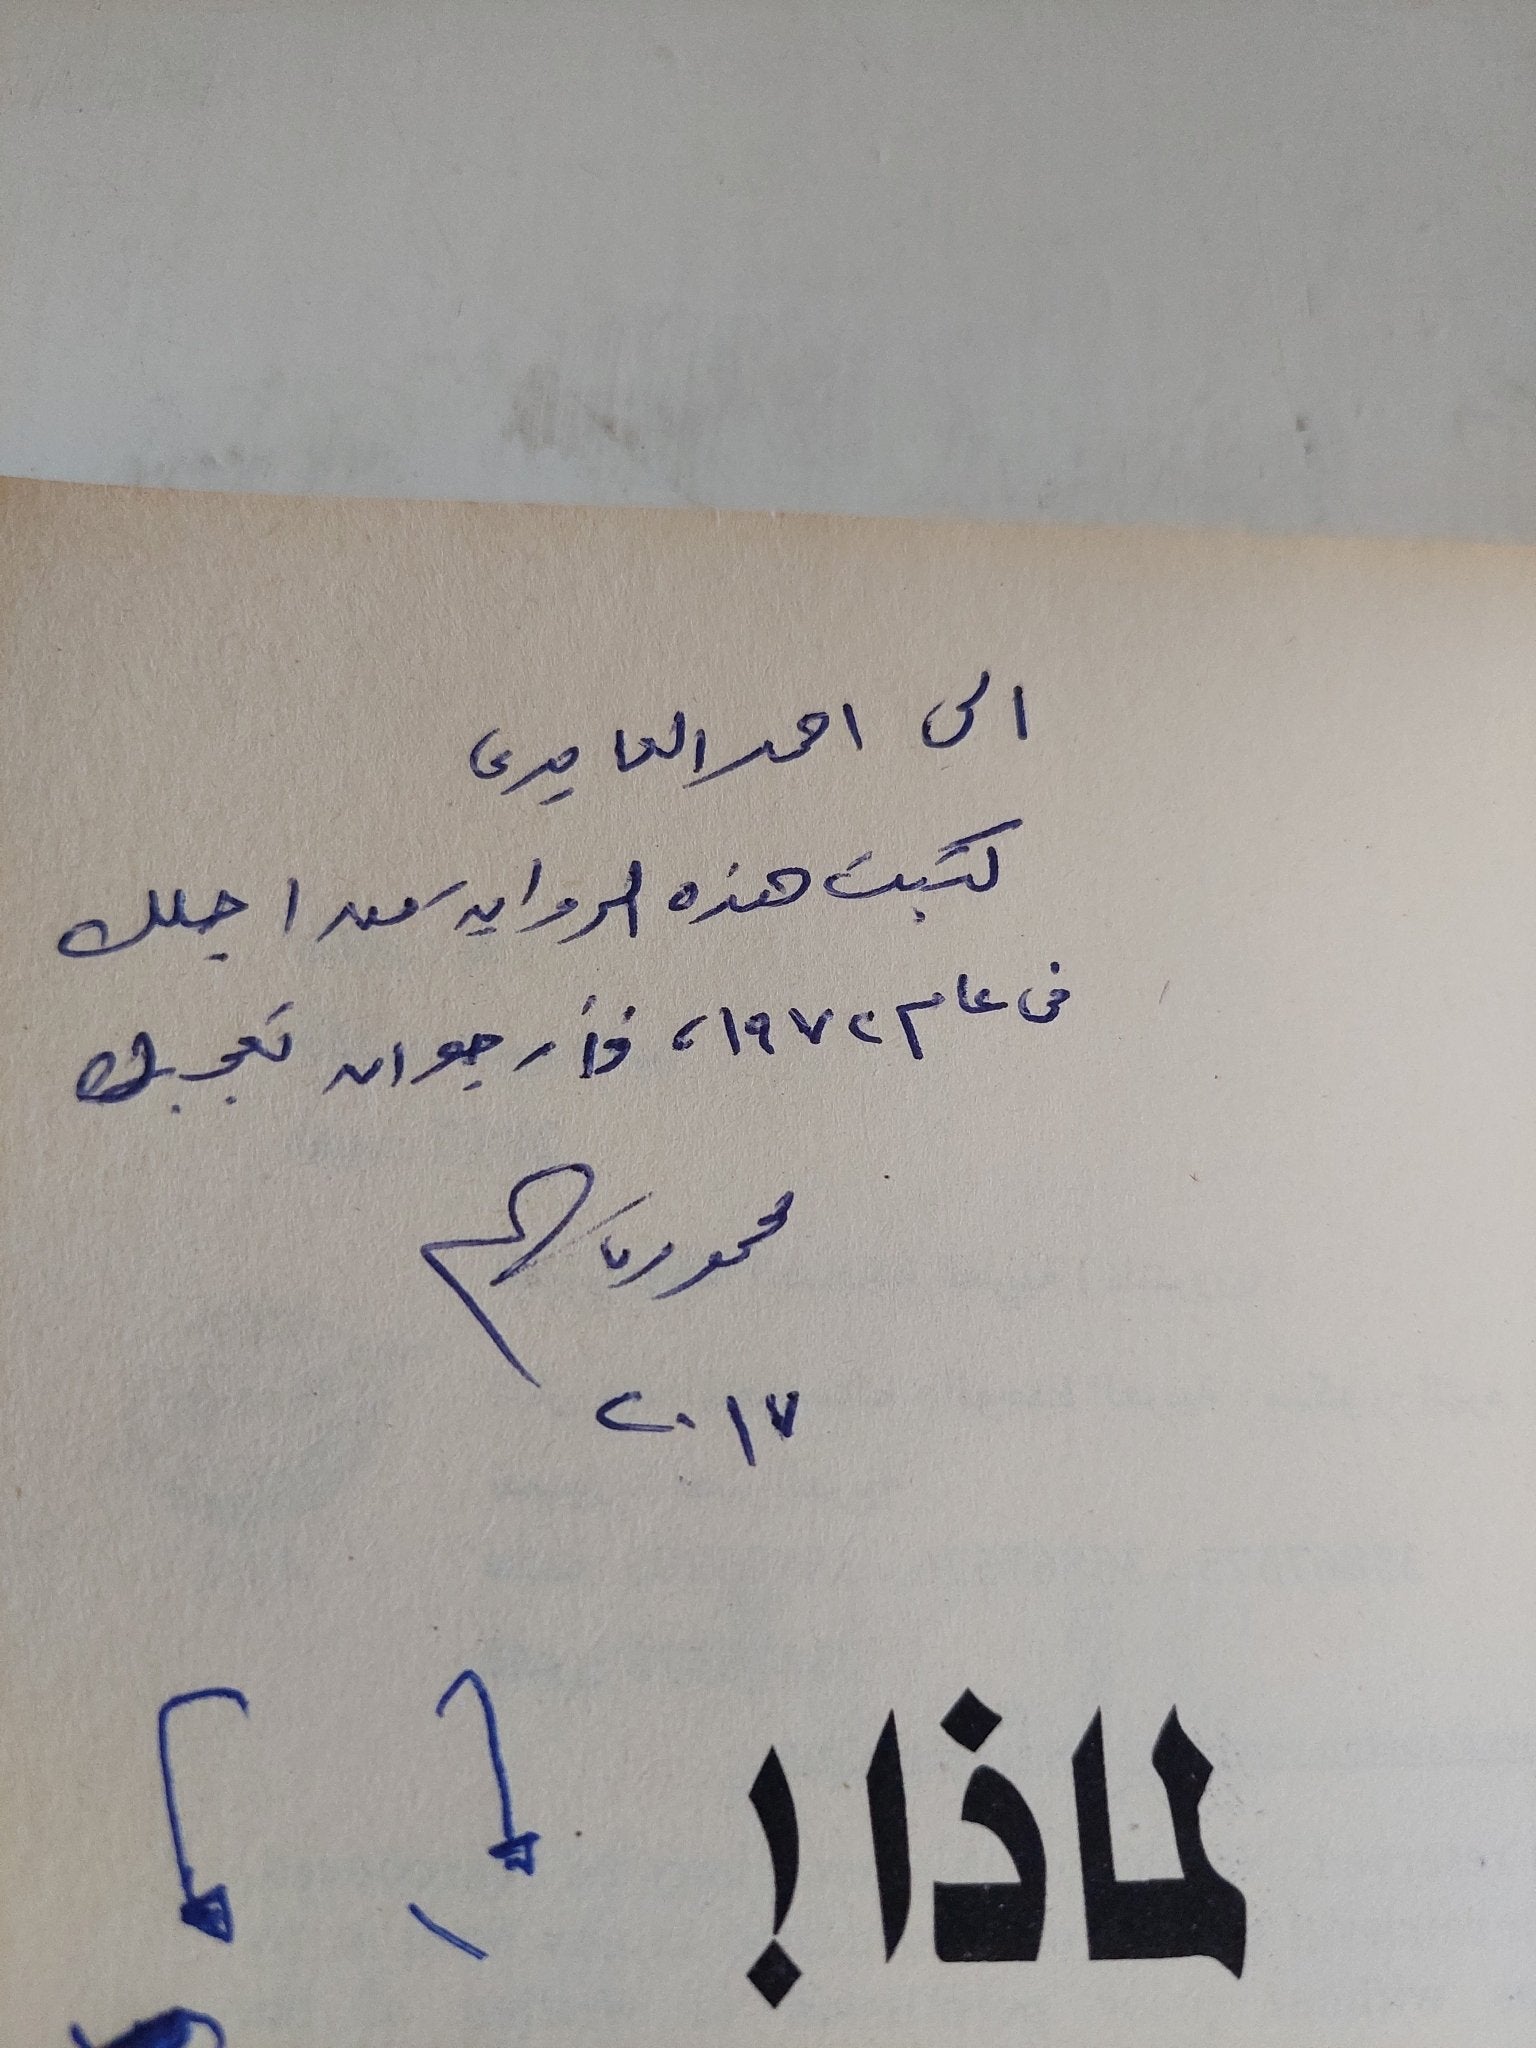 الى احمد العامرى
كتبت هذه الرواية من اجلك
فى عام ١٩٧٢، فأرجو ان تعجبك
محمود
٢٠١٧
لماذا!